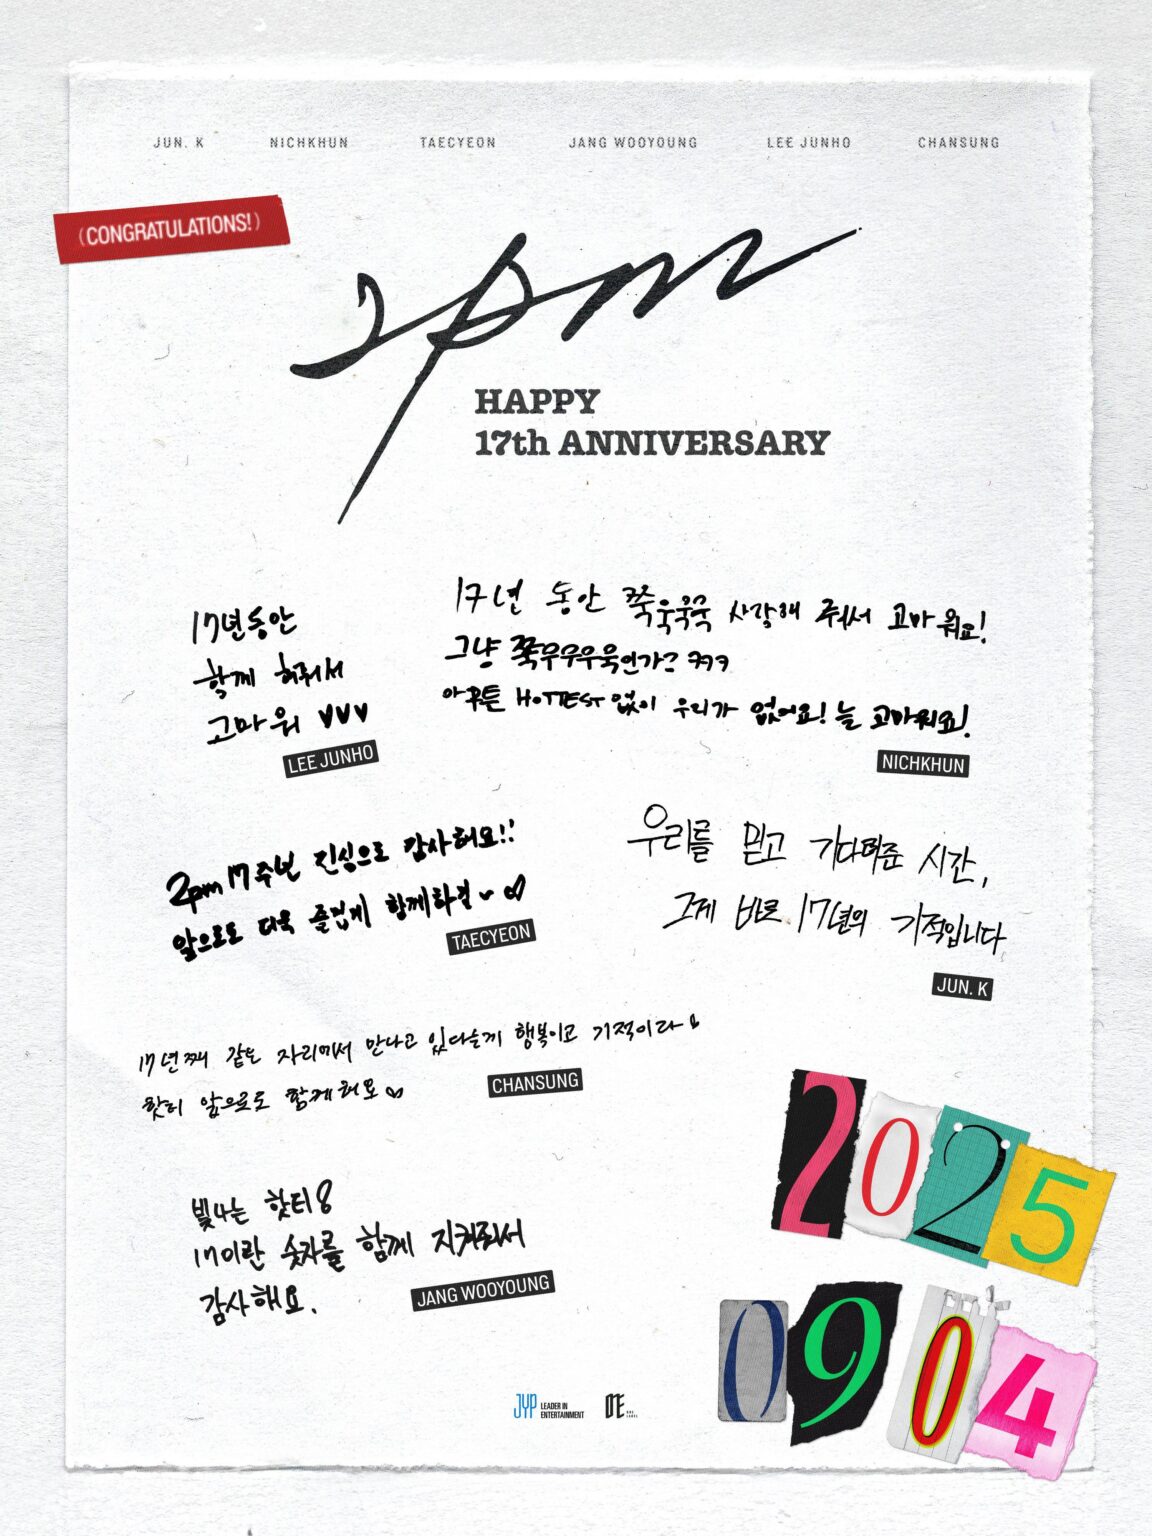 JUN. K NICHKHUN TAECYEON JANG WOOYOUNG LEE JUNHO CHANSUNG
(CONGRATULATIONS!)
2pm
HAPPY
17th ANNIVERSARY
17년동안
함께 해줘서
고마워 ♥♥♥
LEE JUNHO
17년 동안 쭉욱욱욱 사랑해 줘서 고마워요!
그냥 쭉우우우욱인가? ㅋㅋㅋ
아무튼 HOTTEST 없이 우리가 없어요! 늘 고마워요!
NICHKHUN
2pm 17주년 진심으로 감사해요!!
앞으로도 더욱 즐겁게 함께하길~ ♡
TAECYEON
우리를 믿고 기다려준 시간,
그게 바로 17년의 기적입니다
JUN. K
17년째 같은 자리에서 만나고 있다는게 행복이고 기적이다
핫티 앞으로도 함께해요 ♡
CHANSUNG
빛나는 핫티8
17이란 숫자를 함께 지켜줘서
감사해요.
JANG WOOYOUNG
2025
0904
JYP LEADER IN
ENTERTAINMENT